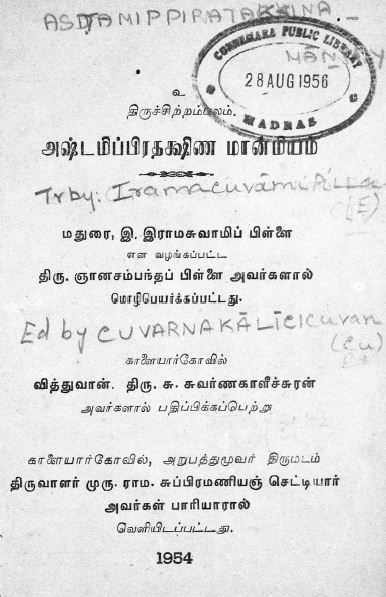 ASTAMIPPIRATAKKINA
MĀNMIY
CONNEMARA PUBLIC LIBRARY
28 AUG 1956
MADRAS
உ
திருச்சிற்றம்பலம்.
அஷ்டமிப்பிரதக்ஷிண மான்மியம்
Tr by: Iramacuvāmi Pillai
(E)
மதுரை, இ. இராமசுவாமிப் பிள்ளை
என வழங்கப்பட்ட
திரு. ஞானசம்பந்தப் பிள்ளை அவர்களால்
மொழிபெயர்க்கப்பட்டது.
Ed by CUVARNAKĀLĪCICUVAN
(Cu)
காளையார்கோவில்
வித்துவான். திரு. சு. சுவர்ணகாளீச்சுரன்
அவர்களால் பதிப்பிக்கப்பெற்று
காளையார்கோவில், அறுபத்துமூவர் திருமடம்
திருவாளர் முரு. ராம. சுப்பிரமணியஞ் செட்டியார்
அவர்கள் பாரியாரால்
வெளியிடப்பட்டது.
1954